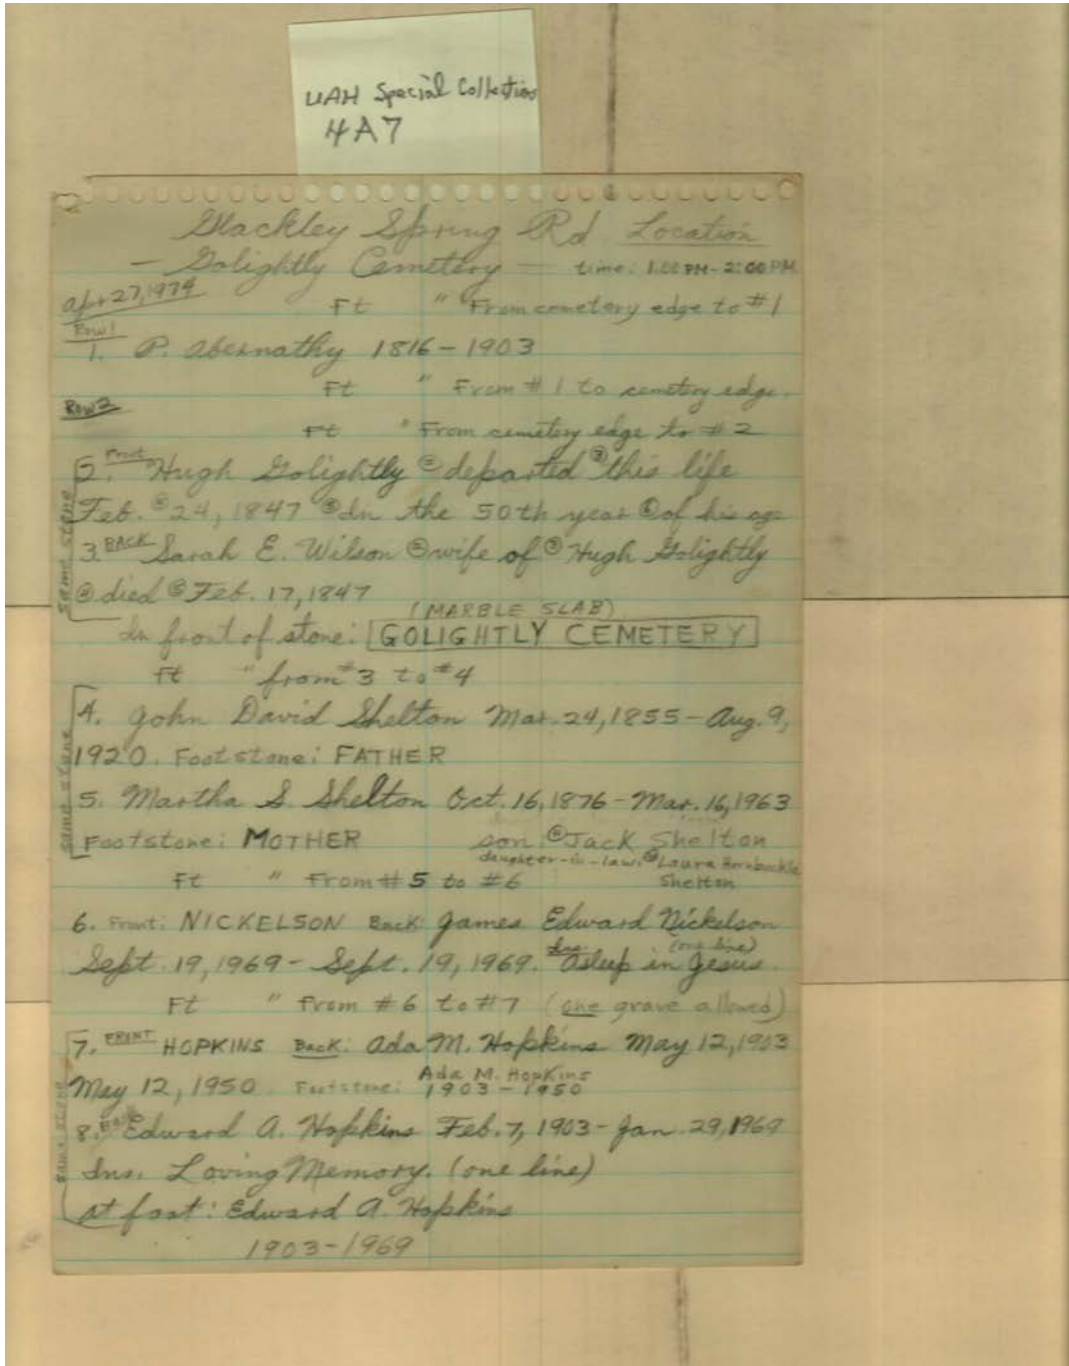 UAH Special Collections
4A7
Blackley Spring Rd Location
- Golightly Cemetery - time: 1:00 PM - 2:00 PM
Apr 27, 1974
Ft " From cemetery edge to #1
Row 1
1. P. Abernathy 1816 - 1903
Ft " From #1 to cemetery edge.
Row 2
Ft " From cemetery edge to #2
2. Front Hugh Golightly ② departed ③ this life
Feb. ④ 24, 1847 ⑤ In the 50th year ⑥ of his age
3. BACK Sarah E. Wilson ② wife of ③ Hugh Golightly
④ died ⑤ Feb. 17, 1847
same stone
(MARBLE SLAB)
In front of stone: GOLIGHTLY CEMETERY
ft " from #3 to #4
4. John David Shelton Mar. 24, 1855 - Aug. 9,
1920. Footstone: FATHER
same stone
5. Martha S. Shelton Oct. 16, 1876 - Mar. 16, 1963
Footstone: MOTHER son: ② Jack Shelton
daughter-in-law: Laura Hornbuckle
Shelton
Ft " From #5 to #6
6. Front: NICKELSON Back: James Edward Nickelson
Sept. 19, 1969 - Sept. 19, 1969. Ins. Asleep in Jesus.
(one line)
Ft " From #6 to #7 (one grave allowed)
7. FRONT HOPKINS Back: Ada M. Hopkins May 12, 1903
May 12, 1950 Footstone: Ada M. Hopkins
1903 - 1950
same stone
8. Back Edward A. Hopkins Feb. 7, 1903 - Jan. 29, 1969
Ins. Loving Memory. (one line)
at foot: Edward A. Hopkins
1903 - 1969